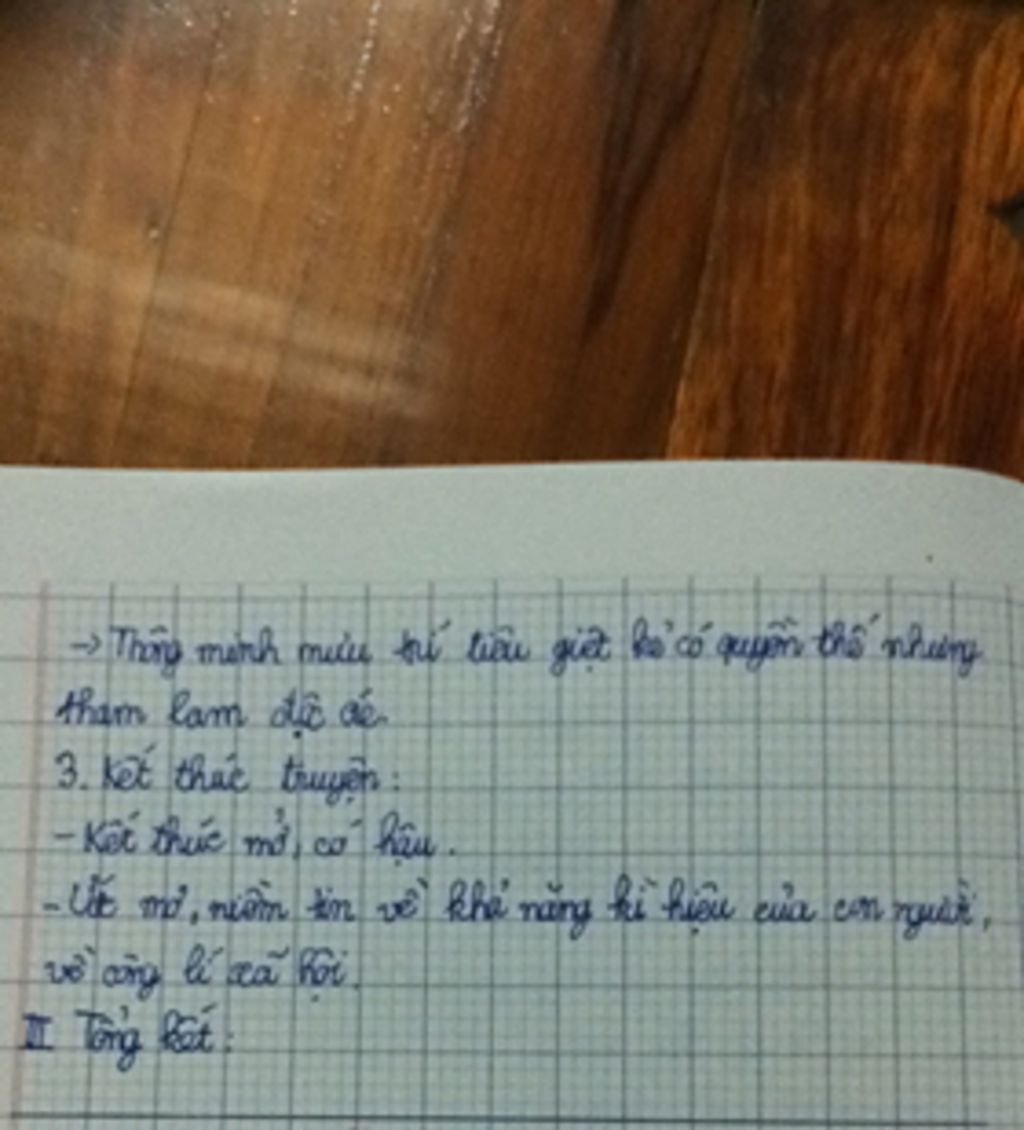 → Thông minh mưu trí tiêu giệt kẻ có quyền thế nhưng
tham lam độc ác.
3. Kết thúc truyện:
- Kết thúc mở, có hậu.
- Ước mơ, niềm tin về khả năng kì hiệu của con người,
về công lí xã hội.
III Tổng kết: